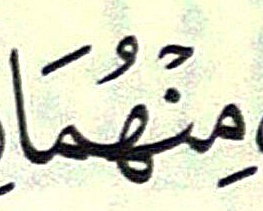 مِنْهُمَا